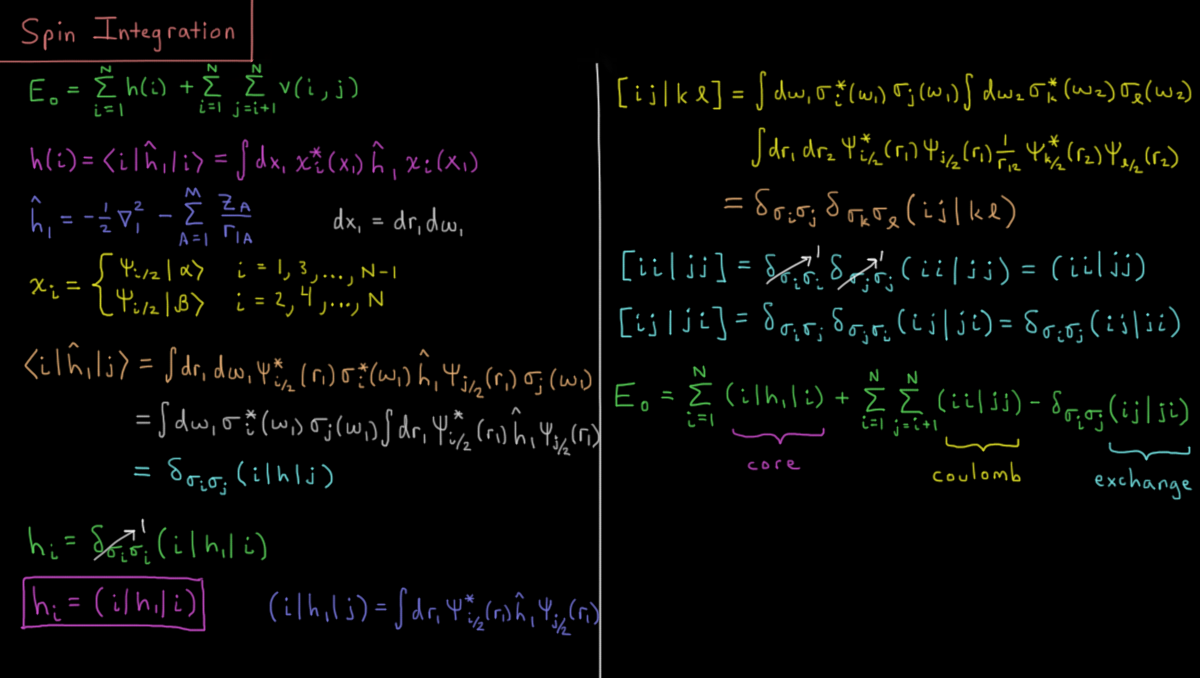 Spin Integration
E₀ = Σ_{i=1}^{N} h(i) + Σ_{i=1}^{N} Σ_{j=i+1}^{N} v(i,j)
h(i) = ⟨i|ĥ₁|i⟩ = ∫dx₁ χᵢ*(x₁) ĥ₁ χᵢ(x₁)
ĥ₁ = -½∇₁² - Σ_{A=1}^{M} Z_A/r_{1A}
dx₁ = dr₁dω₁
χᵢ = { Ψ_{i/2}|α⟩ i = 1, 3, ..., N-1
Ψ_{i/2}|β⟩ i = 2, 4, ..., N
⟨i|ĥ₁|j⟩ = ∫dr₁ dω₁ Ψ*_{i/2}(r₁) σᵢ*(ω₁) ĥ₁ Ψ_{j/2}(r₁) σⱼ(ω₁)
= ∫dω₁ σᵢ*(ω₁) σⱼ(ω₁) ∫dr₁ Ψ*_{i/2}(r₁) ĥ₁ Ψ_{j/2}(r₁)
= δ_{σᵢσⱼ} (i|h|j)
hᵢ = δ_{σᵢσᵢ} 1 (i|h₁|i)
hᵢ = (i|h₁|i)
(i|h₁|j) = ∫dr₁ Ψ*_{i/2}(r₁) ĥ₁ Ψ_{j/2}(r₁)
[ij|kℓ] = ∫dω₁ σᵢ*(ω₁) σⱼ(ω₁) ∫dω₂ σₖ*(ω₂) σ_ℓ(ω₂)
∫dr₁ dr₂ Ψ*_{i/2}(r₁) Ψ_{j/2}(r₁) 1/r₁₂ Ψ*_{k/2}(r₂) Ψ_{ℓ/2}(r₂)
= δ_{σᵢσⱼ} δ_{σₖσ_ℓ} (ij|kℓ)
[ii|jj] = δ_{σᵢσᵢ} 1 δ_{σⱼσⱼ} 1 (ii|jj) = (ii|jj)
[ij|ji] = δ_{σᵢσⱼ} δ_{σⱼσᵢ} (ij|ji) = δ_{σᵢσⱼ} (ij|ji)
E₀ = Σ_{i=1}^{N} (i|h₁|i) + Σ_{i=1}^{N} Σ_{j=i+1}^{N} (ii|jj) - δ_{σᵢσⱼ} (ij|ji)
core
coulomb
exchange